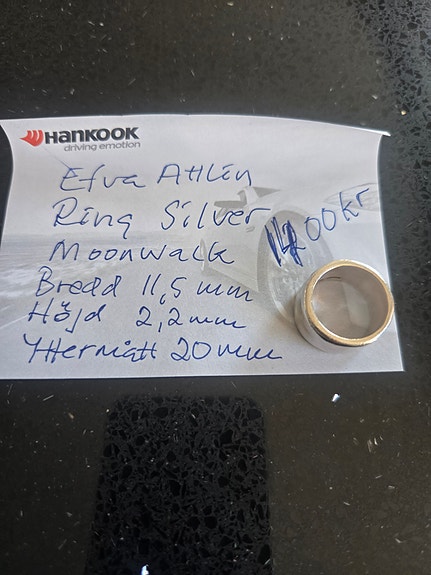 HANKOOK
driving emotion
Efva Attlin
Ring Silver
Moonwalk
Bredd 11,5 mm
Höjd 2,2 mm
Yttermått 20 mm
00 kr